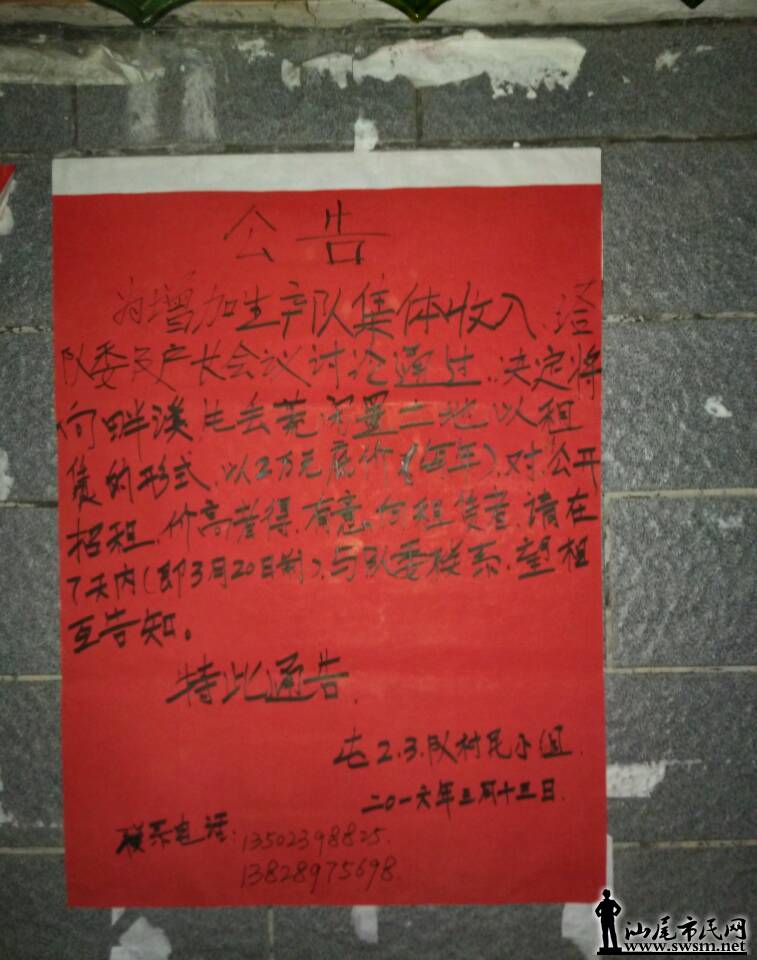 公告
为增加生产队集体收入.经
队委及户长会议讨论通过.决定将
向畔溪片丢荒闲置土地以租
赁的形式.以2万元底价(每年)对公开
招租.价高者得.有意向租赁者.请在
7天内(即3月20日制).与队委联系.望相
互告知。
特此通告.
2.3.队村民小组.
二〇一六年三月十三日.
联系电话:13502398825.
13828975698.
汕尾市民网
www.swsm.net